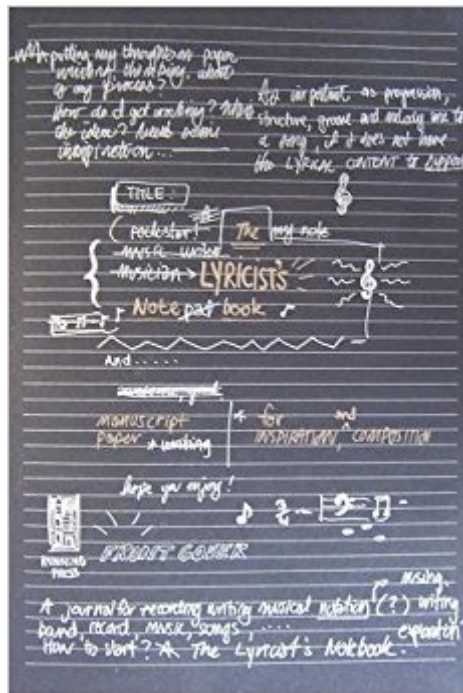 putting my thoughts on paper
writing, thinking, what
is my process?
How do I get writing?
the idea?
inspiration...
As important as progression,
structure, groove and melody are to
a song, if it does not have
the LYRICAL CONTENT to support
TITLE:
rockstar! The my note
music writer
musician LYRICIST'S
Note pad book
And.....
manuscript
paper + writing
+ for and
INSPIRATION, COMPOSITION
hope you enjoy!
RUNNING
PRESS
FRONT COVER
missing.
A journal for recording writing musical notation (?) writing
band, record, music, songs, .... explanation
How to start? A The Lyricist's Notebook.